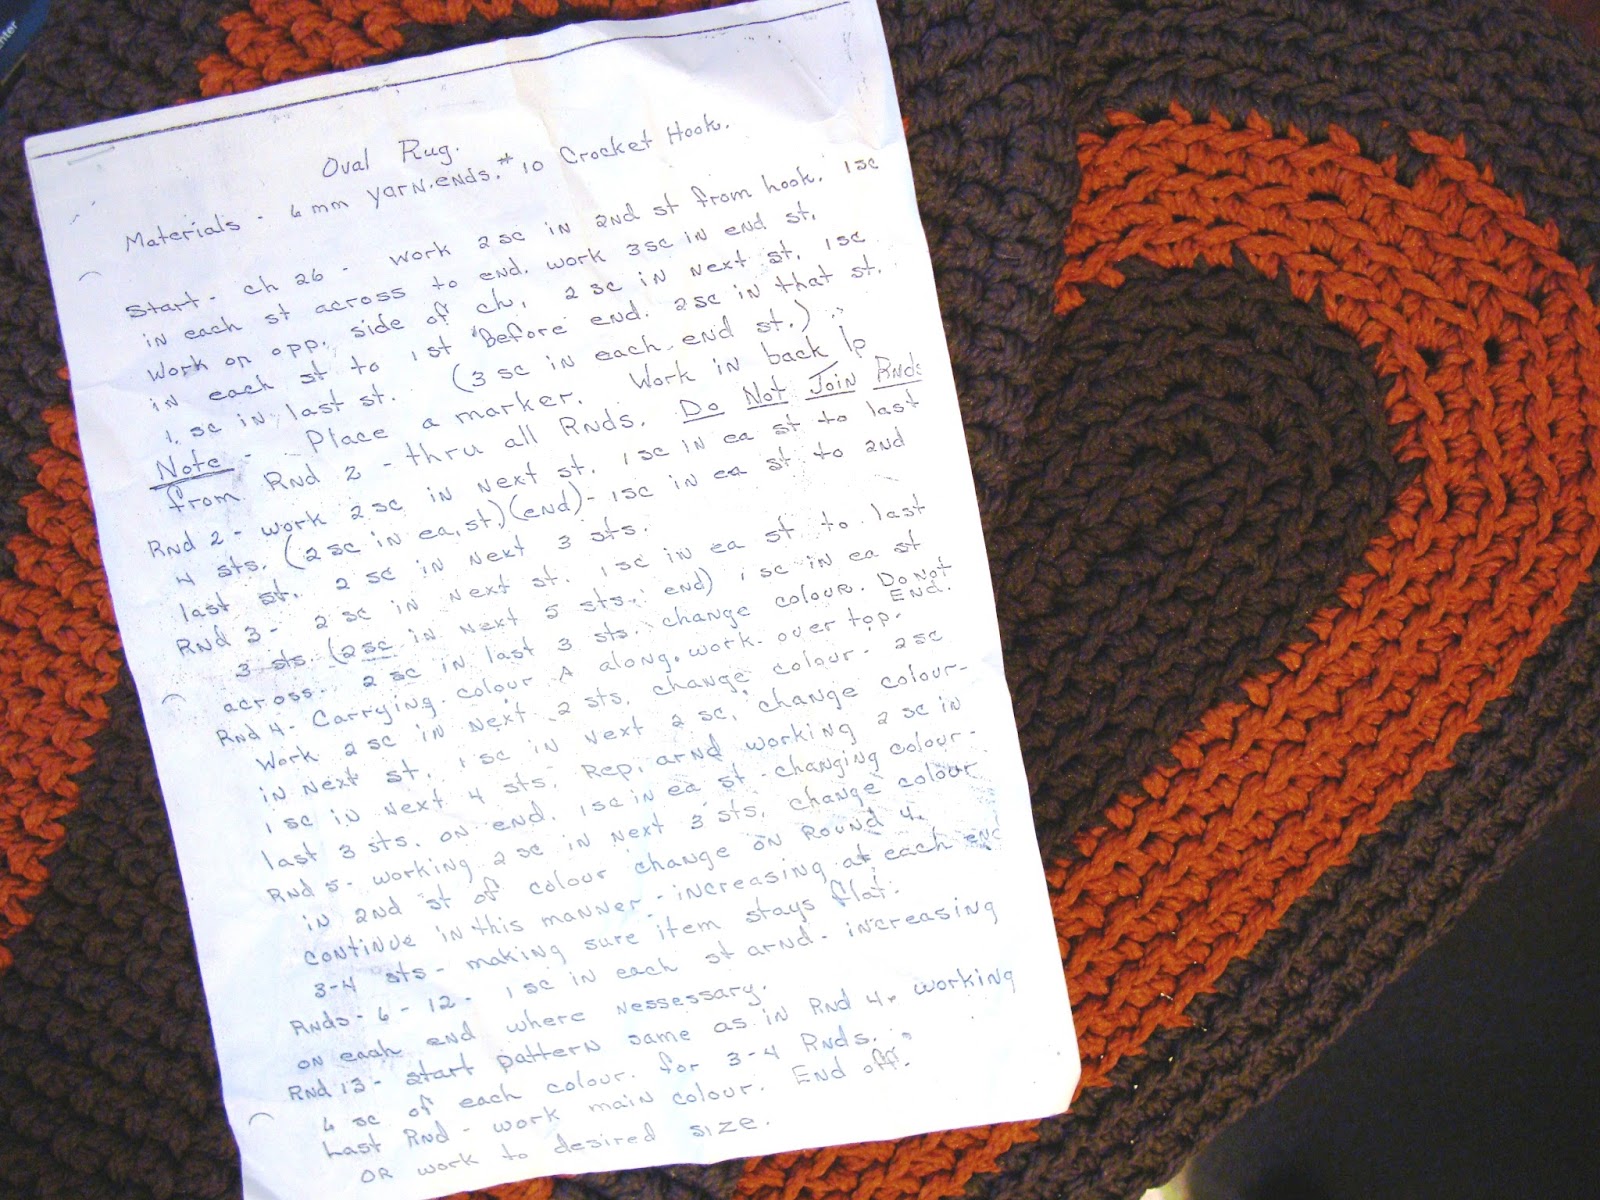 Oval Rug.
Materials - 6mm yarn-ends. #10 Crocket Hook.
Start - ch 26 - Work 2 sc in 2nd st from hook. 1 sc
in each st across to end. work 3sc in end st.
Work on opp. side of ch. 2 sc in next st. 1 sc
in each st to 1st before end. 2sc in that st.
1 sc in last st. (3 sc in each end st.)
Note - Place a marker. Work in back lp
from Rnd 2 - thru all Rnds. Do Not Join Rnds
Rnd 2 - work 2 sc in next st. 1 sc in ea st to last
4 sts. (2 sc in ea. st.) (end) - 1 sc in ea st to 2nd
last st. 2 sc in next 3 sts.
Rnd 3 - 2 sc in next st. 1 sc in ea st to last
3 sts (2 sc in next 5 sts - end) 1 sc in ea st
across - 2 sc in last 3 sts. change colour. Do Not
End.
Rnd 4 - Carrying colour A along. work over top.
Work 2 sc in next 2 sts, change colour - 2 sc
in next st. 1 sc in next 2 sc, change colour -
1 sc in next 4 sts. Rep. arnd working 2 sc in
last 3 sts. on end. 1 sc in ea st - changing colour -
Rnd 5 - working 2 sc in next 3 sts, change colour
in 2nd st of colour change on Round 4.
continue in this manner - increasing at each end
3-4 sts - making sure item stays flat.
Rnds - 6 - 12 - 1 sc in each st arnd - increasing
on each end where nessessary.
Rnd 13 - start pattern same as in Rnd 4. working
6 sc of each colour. for 3-4 Rnds.
Last Rnd - work main colour. End off.
OR work to desired size.